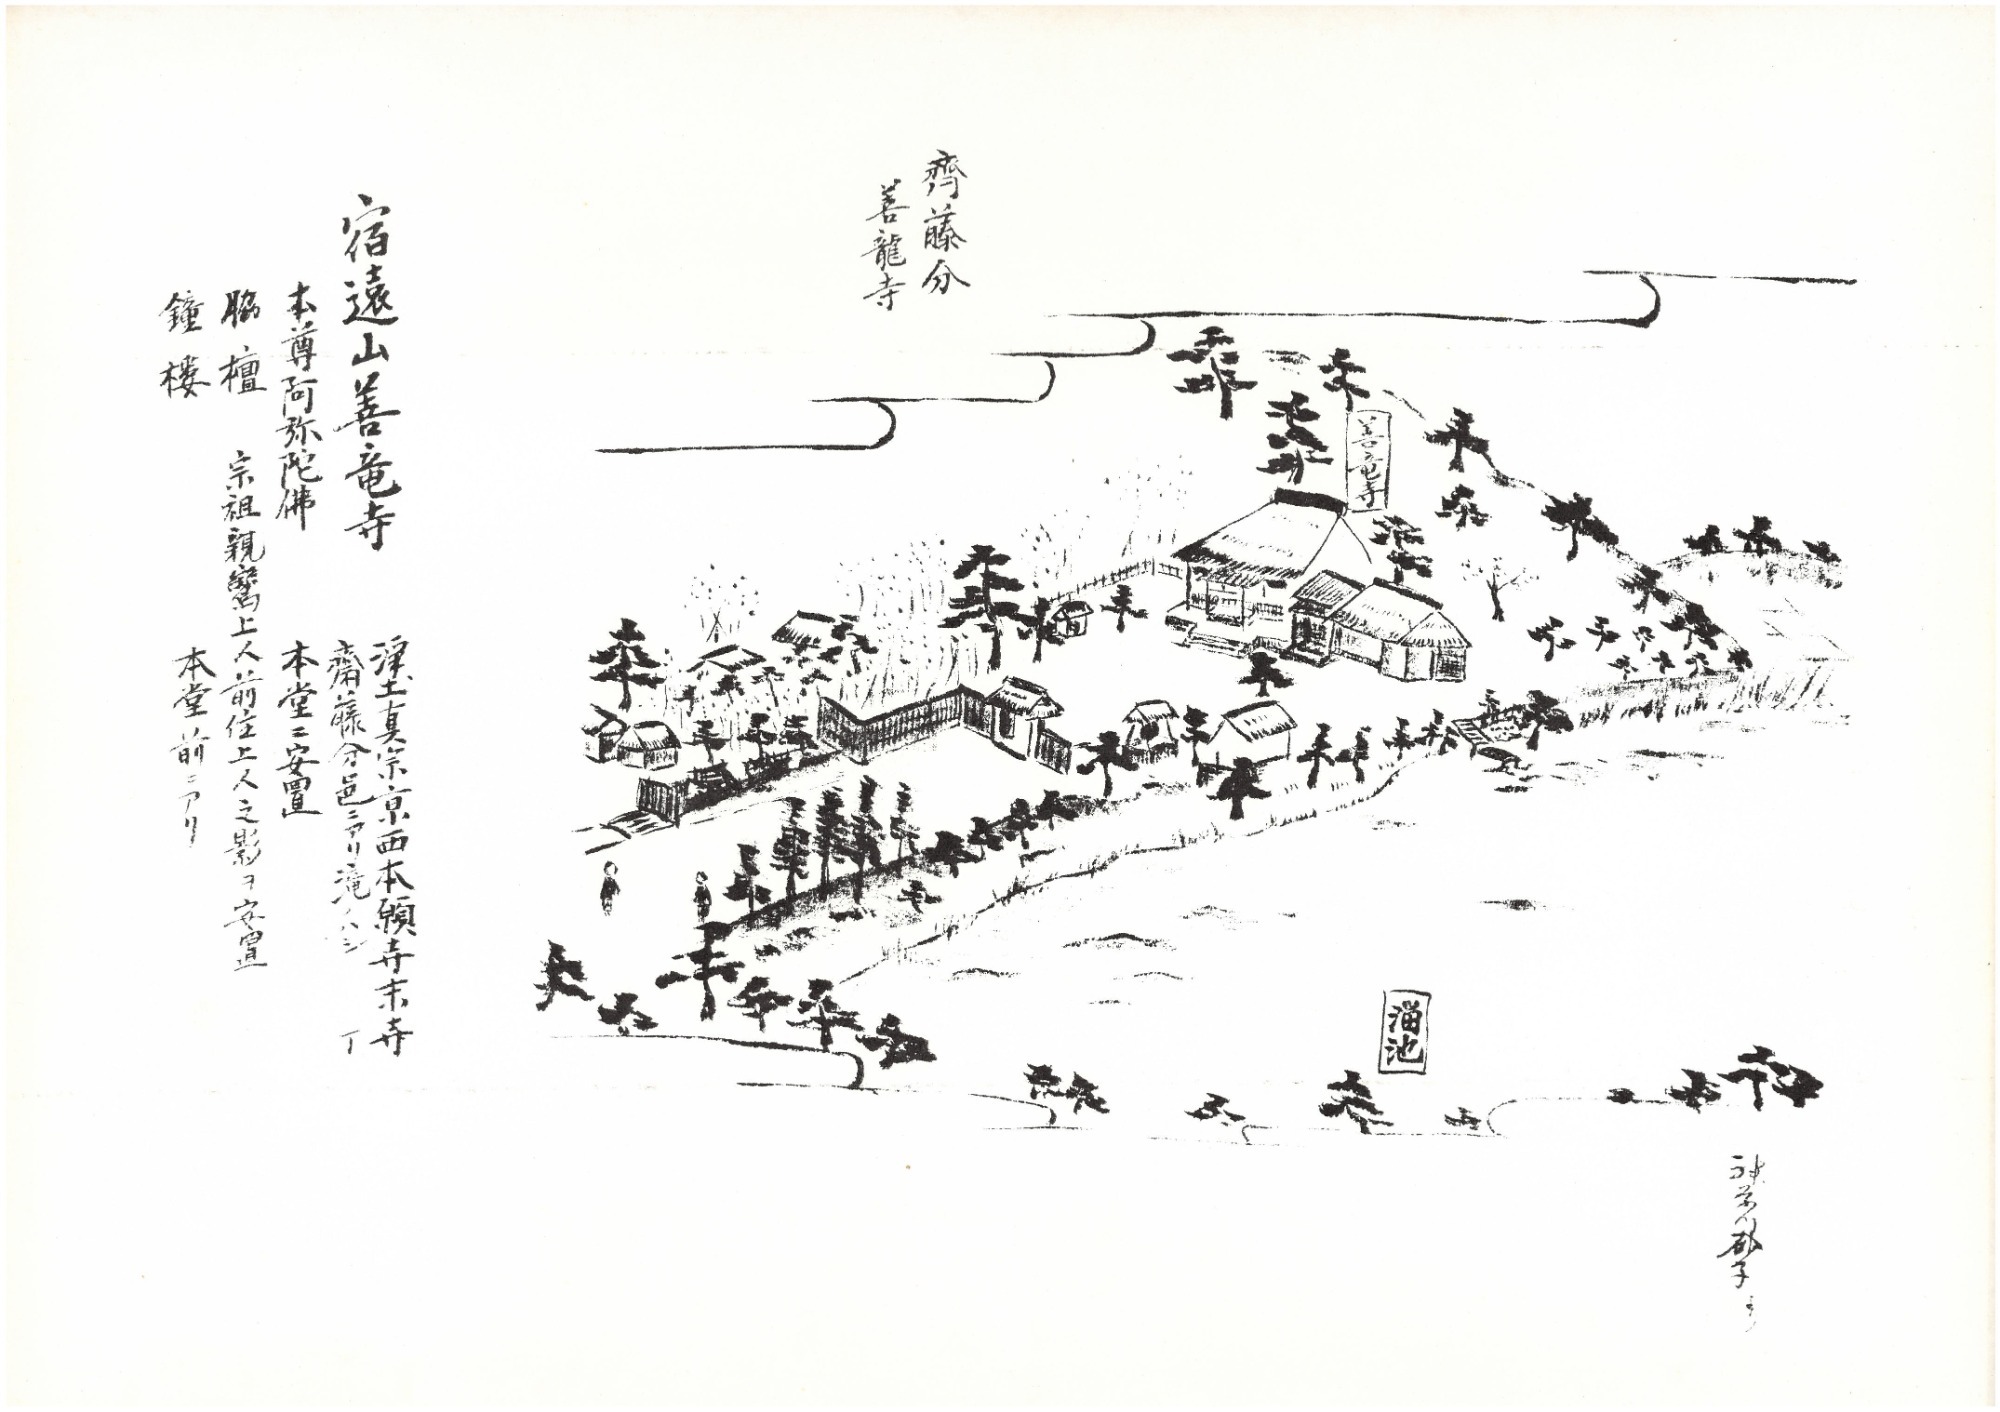 齊藤分
善龍寺
善竜寺
溜池
宿遠山善竜寺
浄土真宗京西本願寺末寺
齋藤分邑ニアリ滝ノハシ 丁
本尊阿弥陀佛 本堂ニ安置
脇檀 宗祖親鸞上人前住上人之影ヲ安置
鐘楼 本堂前ニアリ